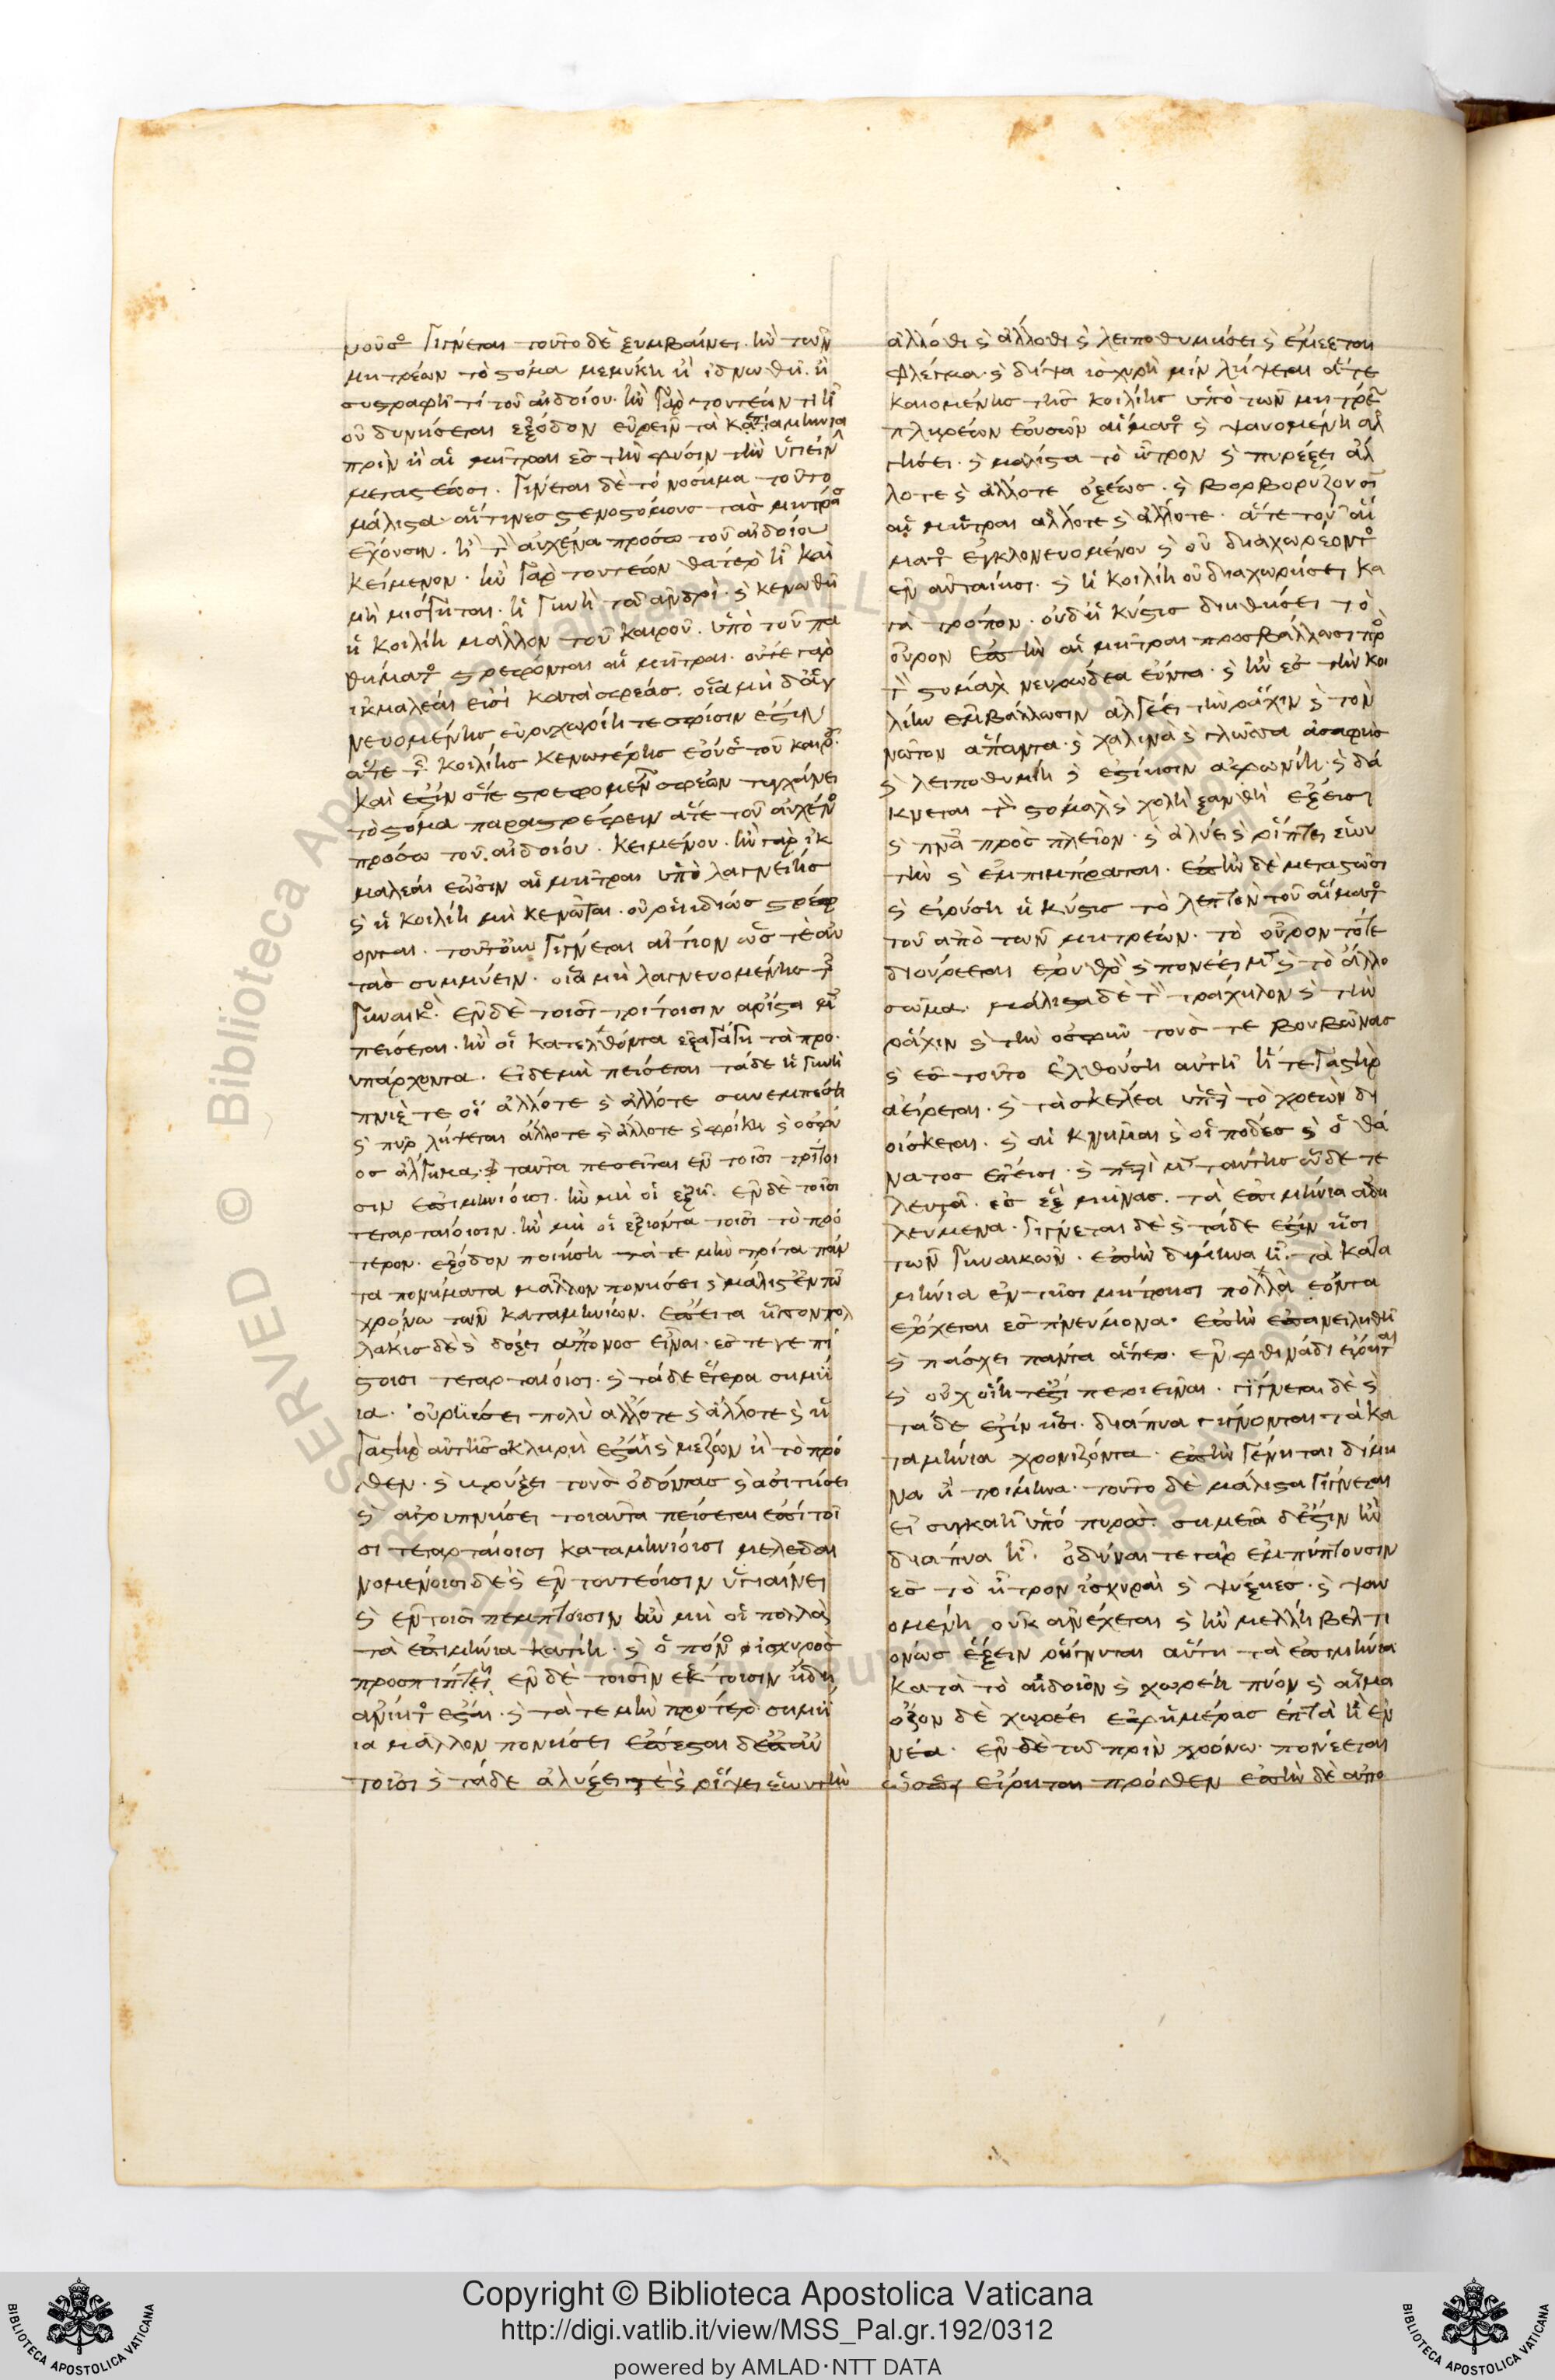 νοῦσος γίγνεται τοῦτο δὲ ξυμβαίνει. ἢν τῶν
μητρέων τὸ στόμα μεμύκη ἢ ἰδνωθῆ. ἢ
συστραφῆ τί τοῦ αἰδοίου. ἢν γὰρ τουτεών τι ἦ
οὐ δυνήσεται ἔξοδον εὑρεῖν τὰ καταμήνια
πρὶν ἢ αἱ μῆτραι ἐς τὴν φύσιν τὴν ὑγιείην
μεταστέωσι. γίνεται δὲ τὸ νόσημα τοῦτο
μάλιστα. αἵτινες στενοστόμους τὰς μήτρας
ἔχουσιν. ἢ τὸν αὐχένα πρόσω τοῦ αἰδοίου
κείμενον. ἢν γὰρ τουτεών θάτερον ἦ καὶ
μὴ μίσγηται. ἡ γυνὴ τῶ ἀνδρὶ. καὶ κενωθῆ
ἡ κοιλίη μᾶλλον τοῦ καιροῦ. ὑπὸ τοῦ πα
θήματος στρέφονται αἱ μῆτραι. οὔτε γὰρ
ἰκμαλέαι εἰσί κατὰ σφέας. οἷα μὴ λαγ
νευομένης εὐρυχωρίη τε σφίσιν ἐστὶν
ἅτε τῆς κοιλίης κενωτέρης ἐούσης τοῦ καιροῦ.
καὶ ἐστὶν ὅτε στρεφομένων σφεῶν τυγχάνει
τὸ στόμα παραστρέφειν ἅτε τοῦ αὐχένος
πρόσω τοῦ αἰδοίου. κειμένου. ἢν γὰρ ἰκ
μαλέαι ἐῶσιν αἱ μῆτραι ὑπὸ λαγνείης
καὶ ἡ κοιλίη μὴ κενῶται. οὐ ῥηιδίως στρέφ
ονται. τοῦτο γίγνεται αἴτιον ὥστε αὐ
τὰς συμμύειν. οἷα μὴ λαγνευομένης τῆς
γυναικός. ἐν δὲ τοῖσι τρίτοισιν
πείσεται. ἢν οἱ κατελθόντα ἐξαγάγη τὰ προ
υπάρχοντα. εἰ δὲ μὴ πείσεται τάδε ἡ γυνὴ
πνίξ τε οἱ ἄλλοτε καὶ ἄλλοτε συνεμπέση
καὶ πῦρ λήψεται ἄλλοτε καὶ ἄλλοτε καὶ φρίκη καὶ ὀσφύ
ος ἄλγημα. καὶ ταῦτα πείσεται ἐν τοῖσι τρίτοι
σιν ἐπιμηνίοισι. ἢν μὴ οἱ ἐξίη. ἐν δὲ τοῖσι
τεταρταίοισιν. ἢν μὴ οἱ ἐξιόντα τοῖσι τὸ πρό
τερον. ἔξοδον ποιήση τά τε μὴν τρίτα πάν
τα πονήματα μᾶλλον πονήσει καὶ μάλιστ ἐν τῶ
χρόνω τῶν καταμηνίων. ἔπειτα ἧσσον πολ
λάκις δὲ καὶ δόξει ἄπονος εἶναι. ἔς τε
τεταρταίοισι. καὶ τάδε ἕτερα σημή
ια. οὐρήσει πολὺ ἄλλοτε καὶ ἄλλοτε καὶ ἡ
γαστὴρ αὐτῆς σκληρὴ ἔσται καὶ μέζων ἢ τὸ πρό
σθεν. καὶ βρύξει τοὺς ὀδόντας καὶ ἀσιτήσει
καὶ ἀγρυπνήσει τοιαῦτα πείσεται ἐπὶ τοῖ
σι τεταρταίοισι καταμηνίοισι μελεδαι
νομένοισι δὲ καὶ ἐν τουτέοισιν ὑγιαίνει
καὶ ἐν τοῖσι πέμπτοισιν ἢν μὴ οἱ πολλὰ
τὰ ἐπιμήνια κατίη. καὶ ὁ πόνος ἰσχυρὸς
προσπίπτει ἐν δὲ τοῖσιν ἕκτοισιν ἤδη
ἀνίητος ἔσται. καὶ τά τε μὴν πρότερον σημή
ια μᾶλλον πονήσει
τοῖσι καὶ τάδε ἀλύξει τε καὶ ῥίψει ἑωυτὴν
ἄλλοθι καὶ ἄλλοθι καὶ λειποθυμήσει καὶ ἐμέεται
φλέγμα. καὶ δίψα ἰσχυρὴ μιν λήψεται ἅτε
καιομένης τῆς κοιλίης ὑπὸ τῶν μητρέων
πληρέων ἐουσῶν αἵματος καὶ ψαυομένη ἀλ
γήσει. καὶ μάλιστα τὸ ἦτρον καὶ πυρέξει ἄλ
λοτε καὶ ἄλλοτε ὀξέως. καὶ βορβορύζουσι
αἱ μῆτραι ἄλλοτε καὶ ἄλλοτε. ἅτε τοῦ αἵ
ματος ἐγκλονευομένου καὶ οὐ διαχωρέοντος
ἐν αὐταίησι. καὶ ἡ κοιλίη οὐ διαχωρήσει κα
τὰ τρόπον. οὐδ ἡ κύστις διηθήσει τὸ
οὖρον ἐπὴν αἱ μῆτραι προσβάλλωσι πρὸς
τὸν στόμαχον νευρώδεα ἐόντα. καὶ ἢν ἐς τὴν κοι
λίην ἐμβάλλωσιν ἀλγέει τὴν ῥάχιν καὶ τὸν
νῶτον ἅπαντα. καὶ χαλινὰ καὶ γλῶσσα ἀσαφὴς
καὶ λειποθυμίη καὶ ἐστῆισιν ἀφωνίη. καὶ δά
κνεται τὸν στόμαχον καὶ χολὴ ξανθὴ ἔξεισι
καὶ πνεῦμα πρὸς πλεῖον. καὶ ἀλύει καὶ ῥίπτει ἑωυ
τὴν καὶ ἐμπίμπραται. ἐπὴν δὲ μεταστῶσι
καὶ εἰρύση ἡ κύστις τὸ λεπτὸν τοῦ αἵματος
τοῦ ἀπὸ τῶν μητρέων. τὸ οὖρον τότε
διουρέεται ἐρυθρὸν καὶ πονέει μὲν καὶ τὸ ἄλλο
σῶμα. μάλιστα δὲ τὸν τράχηλον καὶ τὴν
ῥάχιν καὶ τὴν ὀσφῦν τούς τε βουβῶνας
καὶ ἐς τοῦτο ἐλθούση αὐτῆ ἥ τε γαστὴρ
ἀείρεται. καὶ τὰ σκέλεα ὑπὲρ τὸ χρεὼν δι
οίσκεται. καὶ αἱ κνῆμαι καὶ οἱ πόδες καὶ ὁ θά
νατος ἔπεισι. καὶ περὶ μὲν ταύτης ὧδε τε
λευτᾶ. ἐς ἓξ μῆνας. τὰ ἐπιμήνια
γίγνεται δὲ καὶ τάδε ἐστὶν ἧσι
τῶν γυναικῶν. ἐπὴν δίμηνα ἦ. τὰ κατα
μήνια ἐν τῆσι μήτρησι πολλὰ ἐόντα
ἔρχεται ἐς πνεύμονα. ἐπὴν ἀπανειληθῆ
καὶ πάσχει πάντα ἅπερ. ἐν φθινάδι εἴρηται
καὶ οὐχ οἵη τέ ἐστι περιεῖναι. γίγνεται δὲ καὶ
τάδε ἐστὶν ἧσι. διάπυα γίνονται τὰ κα
ταμήνια χρονίζοντα. ἐπὴν γένηται δίμη
να ἢ τρίμηνα. τοῦτο δὲ μάλιστα γίγνεται
εἰ συγκαῆ ὑπὸ πυρός. σημεῖα δέ ἐστιν ἢν
διάπυα ἦ. ὀδύναι τε γὰρ ἐμπίπτουσιν
ἐς τὸ ἦτρον ἰσχυραὶ καὶ ψύξιες. καὶ ψαυ
ομένη οὐκ ἀνέχεται καὶ ἢν μέλλη βελτι
ονως ἕξειν ῥήγνυται αὐτῆ τὰ ἐπιμήνια
κατὰ τὸ αἰδοῖον καὶ χωρέει πύον καὶ αἷμα
ὄζον δὲ χωρέει ἐφ ἡμέρας ἑπτὰ ἢ ἐν
νέα. ἐν δὲ τῶ πρὶν χρόνω. πονέεται
ὥσπερ εἴρηται πρόσθεν ἐπὴν δὲ ἀπο
Copyright © Biblioteca Apostolica Vaticana
http://digi.vatlib.it/view/MSS_Pal.gr.192/0312
powered by AMLAD·NTT DATA